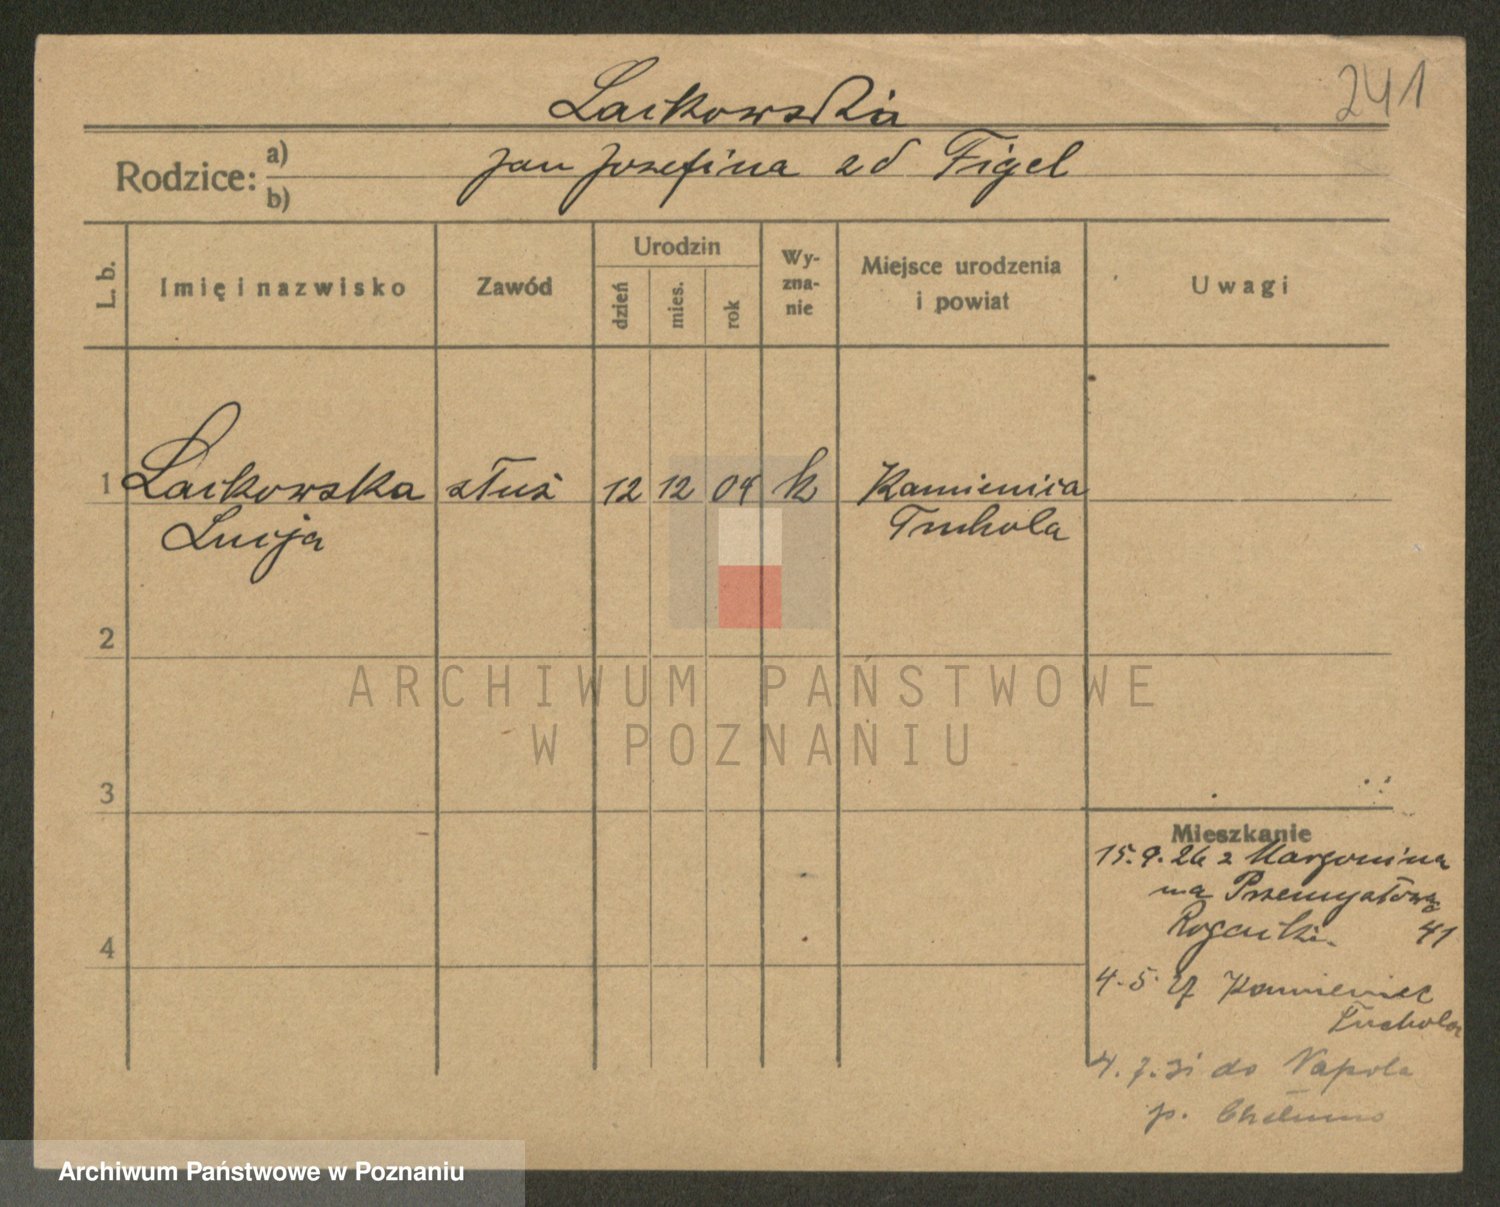 241
Lackowska
Rodzice:
a) Jan Józefina zd Figel
b)
L. b.
Imię i nazwisko
Zawód
Urodzin
dzień
mies.
rok
Wy-
zna-
nie
Miejsce urodzenia
i powiat
Uwagi
1 Lackowska służ 12 12 04 k Kamienica
Lucja Tuchola
2
3
4
Mieszkanie
15.9.26 z Margonina
na Przemysłową
41
4.5. Kamienica
Tuchola
4.7.31 do Napola
p. Chełmno
ARCHIWUM PAŃSTWOWE
W POZNANIU
Archiwum Państwowe w Poznaniu